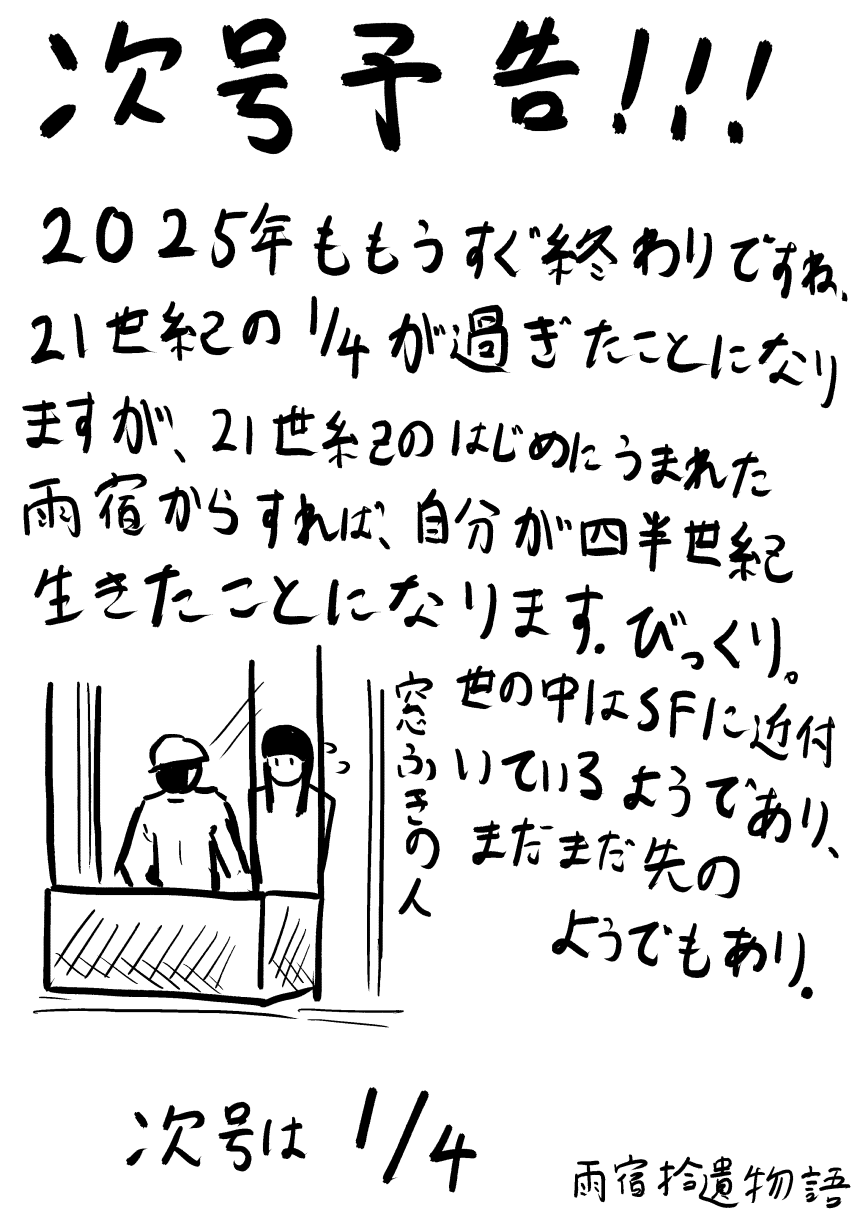 次号予告!!!
2025年ももうすぐ終わりですね、
21世紀の1/4が過ぎたことになり
ますが、21世紀のはじめにうまれた
雨宿からすれば、自分が四半世紀
生きたことになります。びっくり。
世の中はSFに近付
いているようであり、
まだまだ先の
ようでもあり。
窓ふきの人
次号は 1/4
雨宿拾遺物語